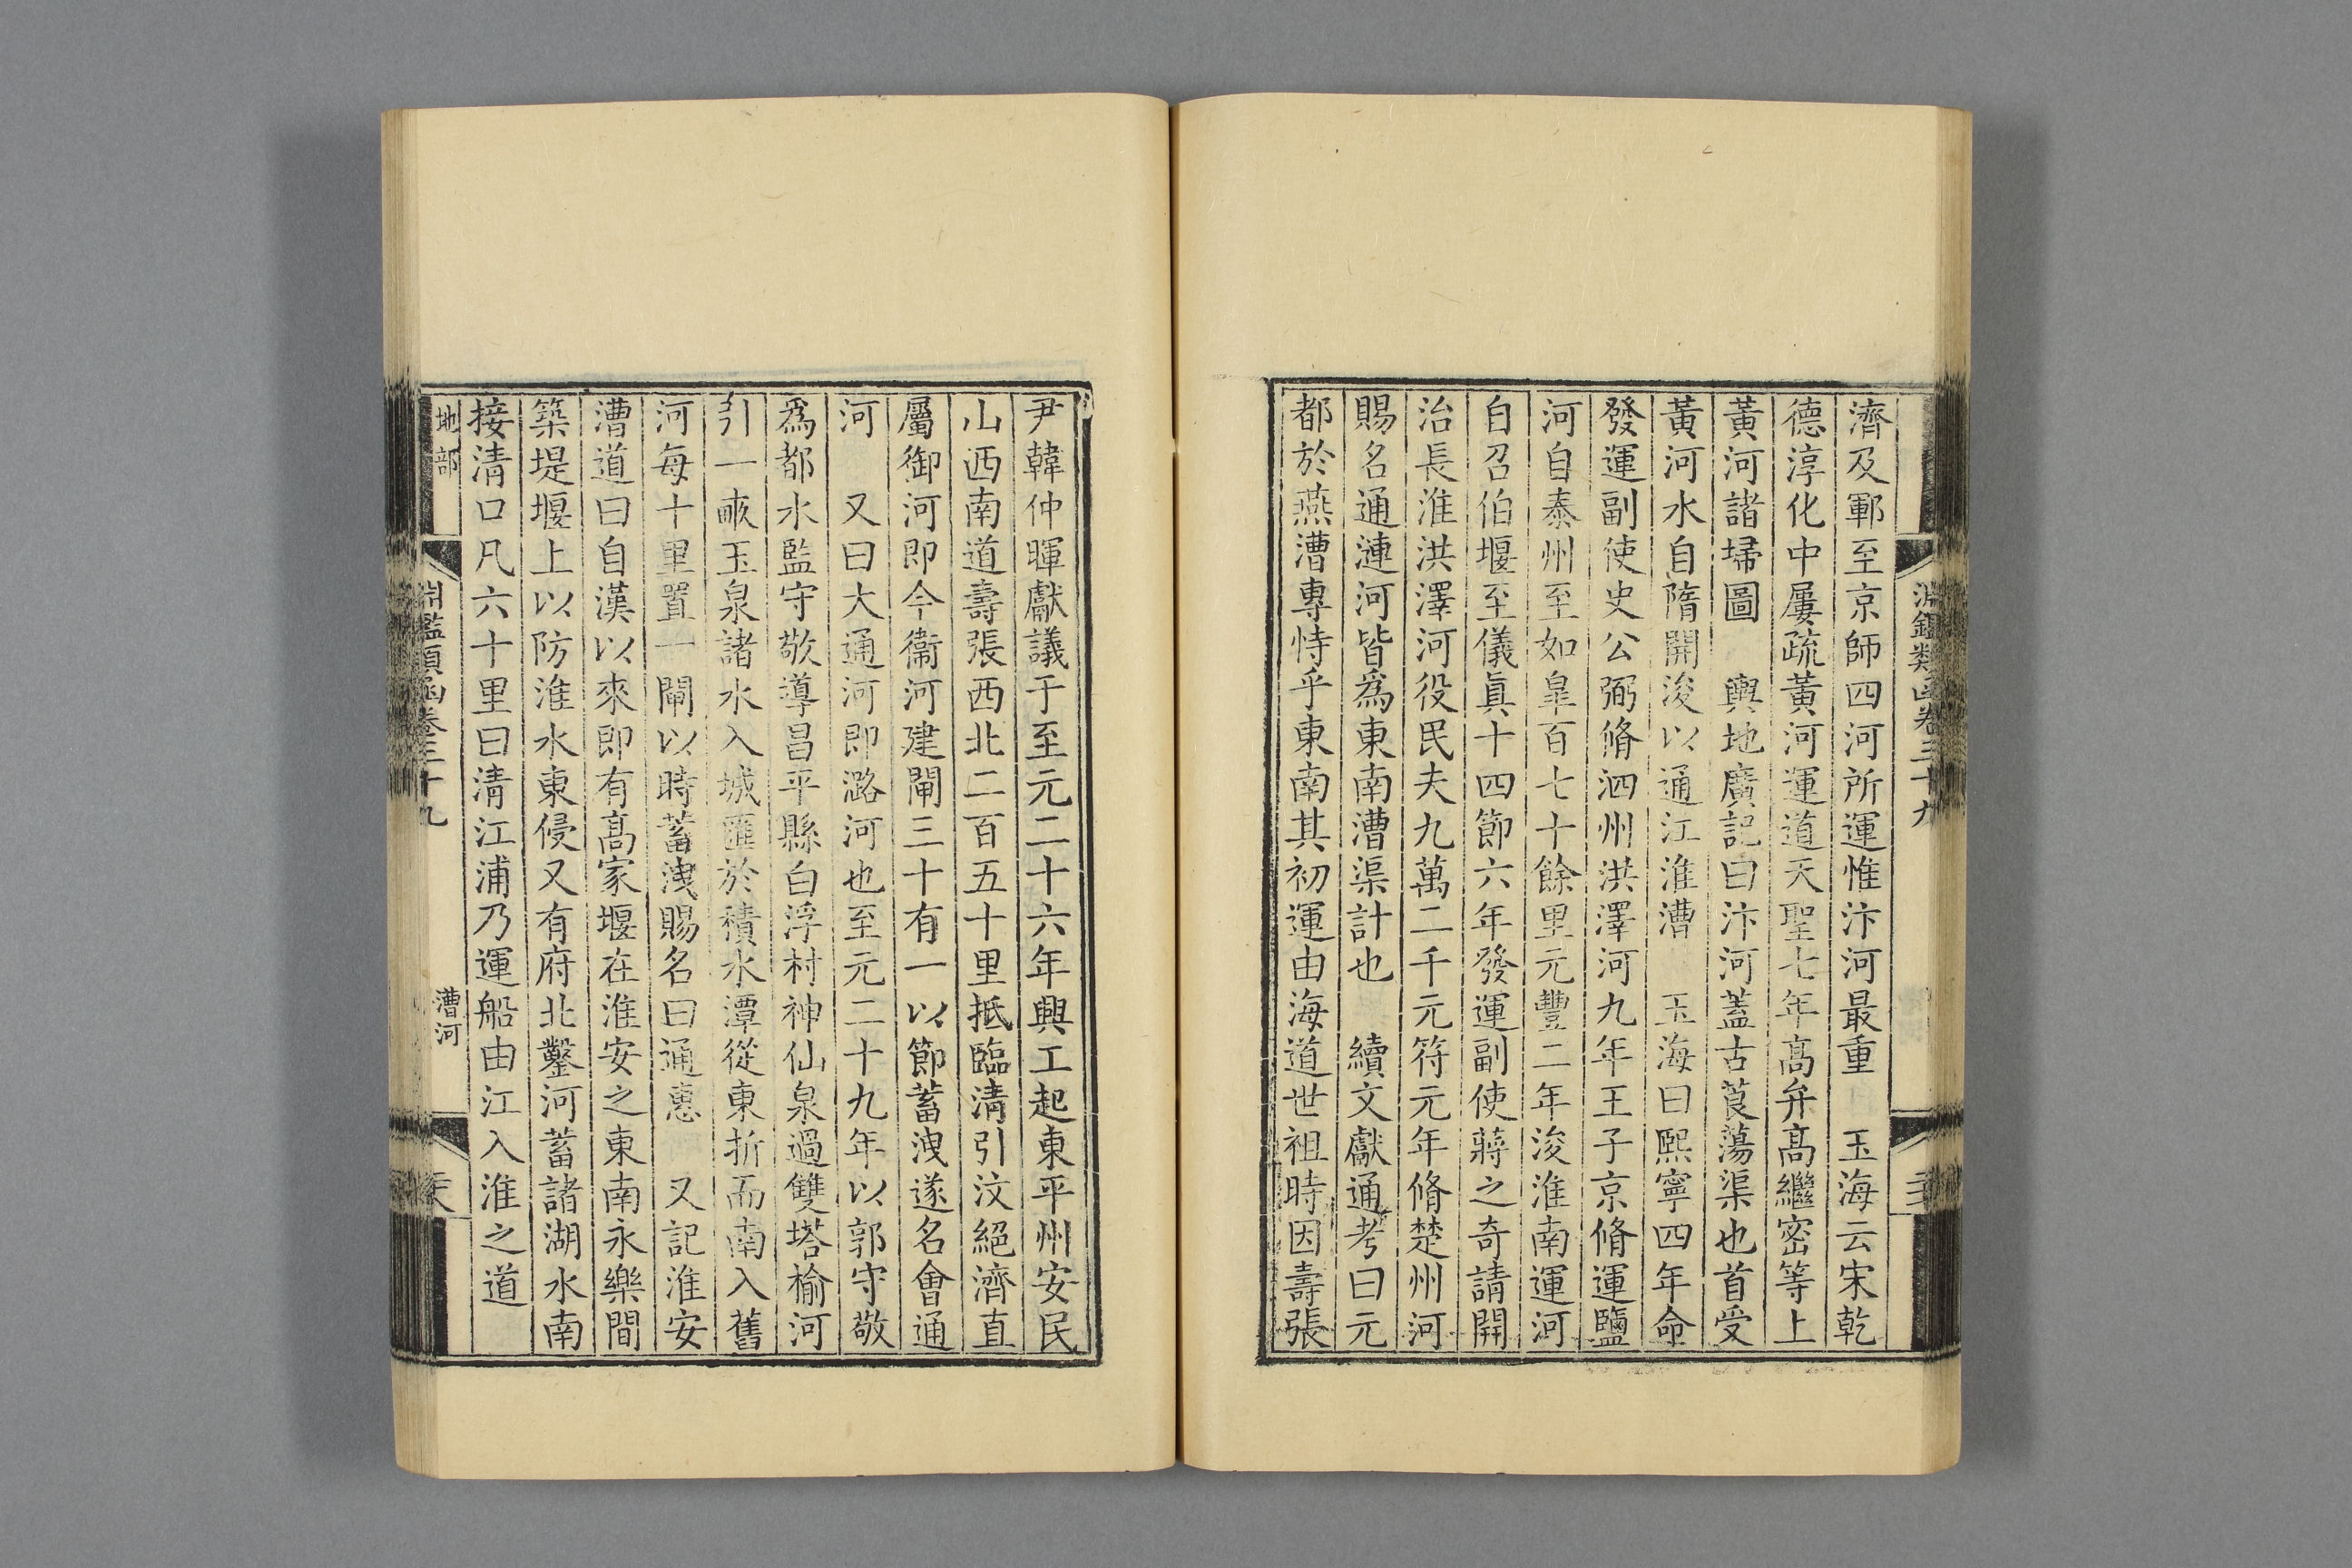 濟及鄆至京師四河所運惟汴河最重　玉海云宋乾
德淳化中屢疏黃河運道天聖七年高弁高繼密等上
黃河諸埽圖　輿地廣記曰汴河蓋古莨蕩渠也首受
黃河水自隋開浚以通江淮漕　玉海曰熙寧四年命
發運副使史公弼脩泗州洪澤河九年王子京脩運鹽
河自泰州至如皐百七十餘里元豐二年浚淮南運河
自召伯堰至儀眞十四節六年發運副使蔣之奇請開
治長淮洪澤河役民夫九萬二千元符元年脩楚州河
賜名通漣河皆爲東南漕渠計也　續文獻通考曰元
都於燕漕專恃乎東南其初運由海道世祖時因壽張
淵鑑類函卷三十九
尹韓仲暉獻議于至元二十六年興工起東平州安民
山西南道壽張西北二百五十里抵臨淸引汶絕濟直
屬御河即今衞河建閘三十有一以節蓄洩遂名會通
河　又曰大通河即潞河也至元二十九年以郭守敬
爲都水監守敬導昌平縣白浮村神仙泉過雙塔榆河
引一畝玉泉諸水入城匯於積水潭從東折而南入舊
河每十里置一閘以時蓄洩賜名曰通惠　又記淮安
漕道曰自漢以來即有高家堰在淮安之東南永樂間
築堤堰上以防淮水東侵又有府北鑿河蓄諸湖水南
接淸口凡六十里曰淸江浦乃運船由江入淮之道
地部
淵鑑類函卷三十九
漕河